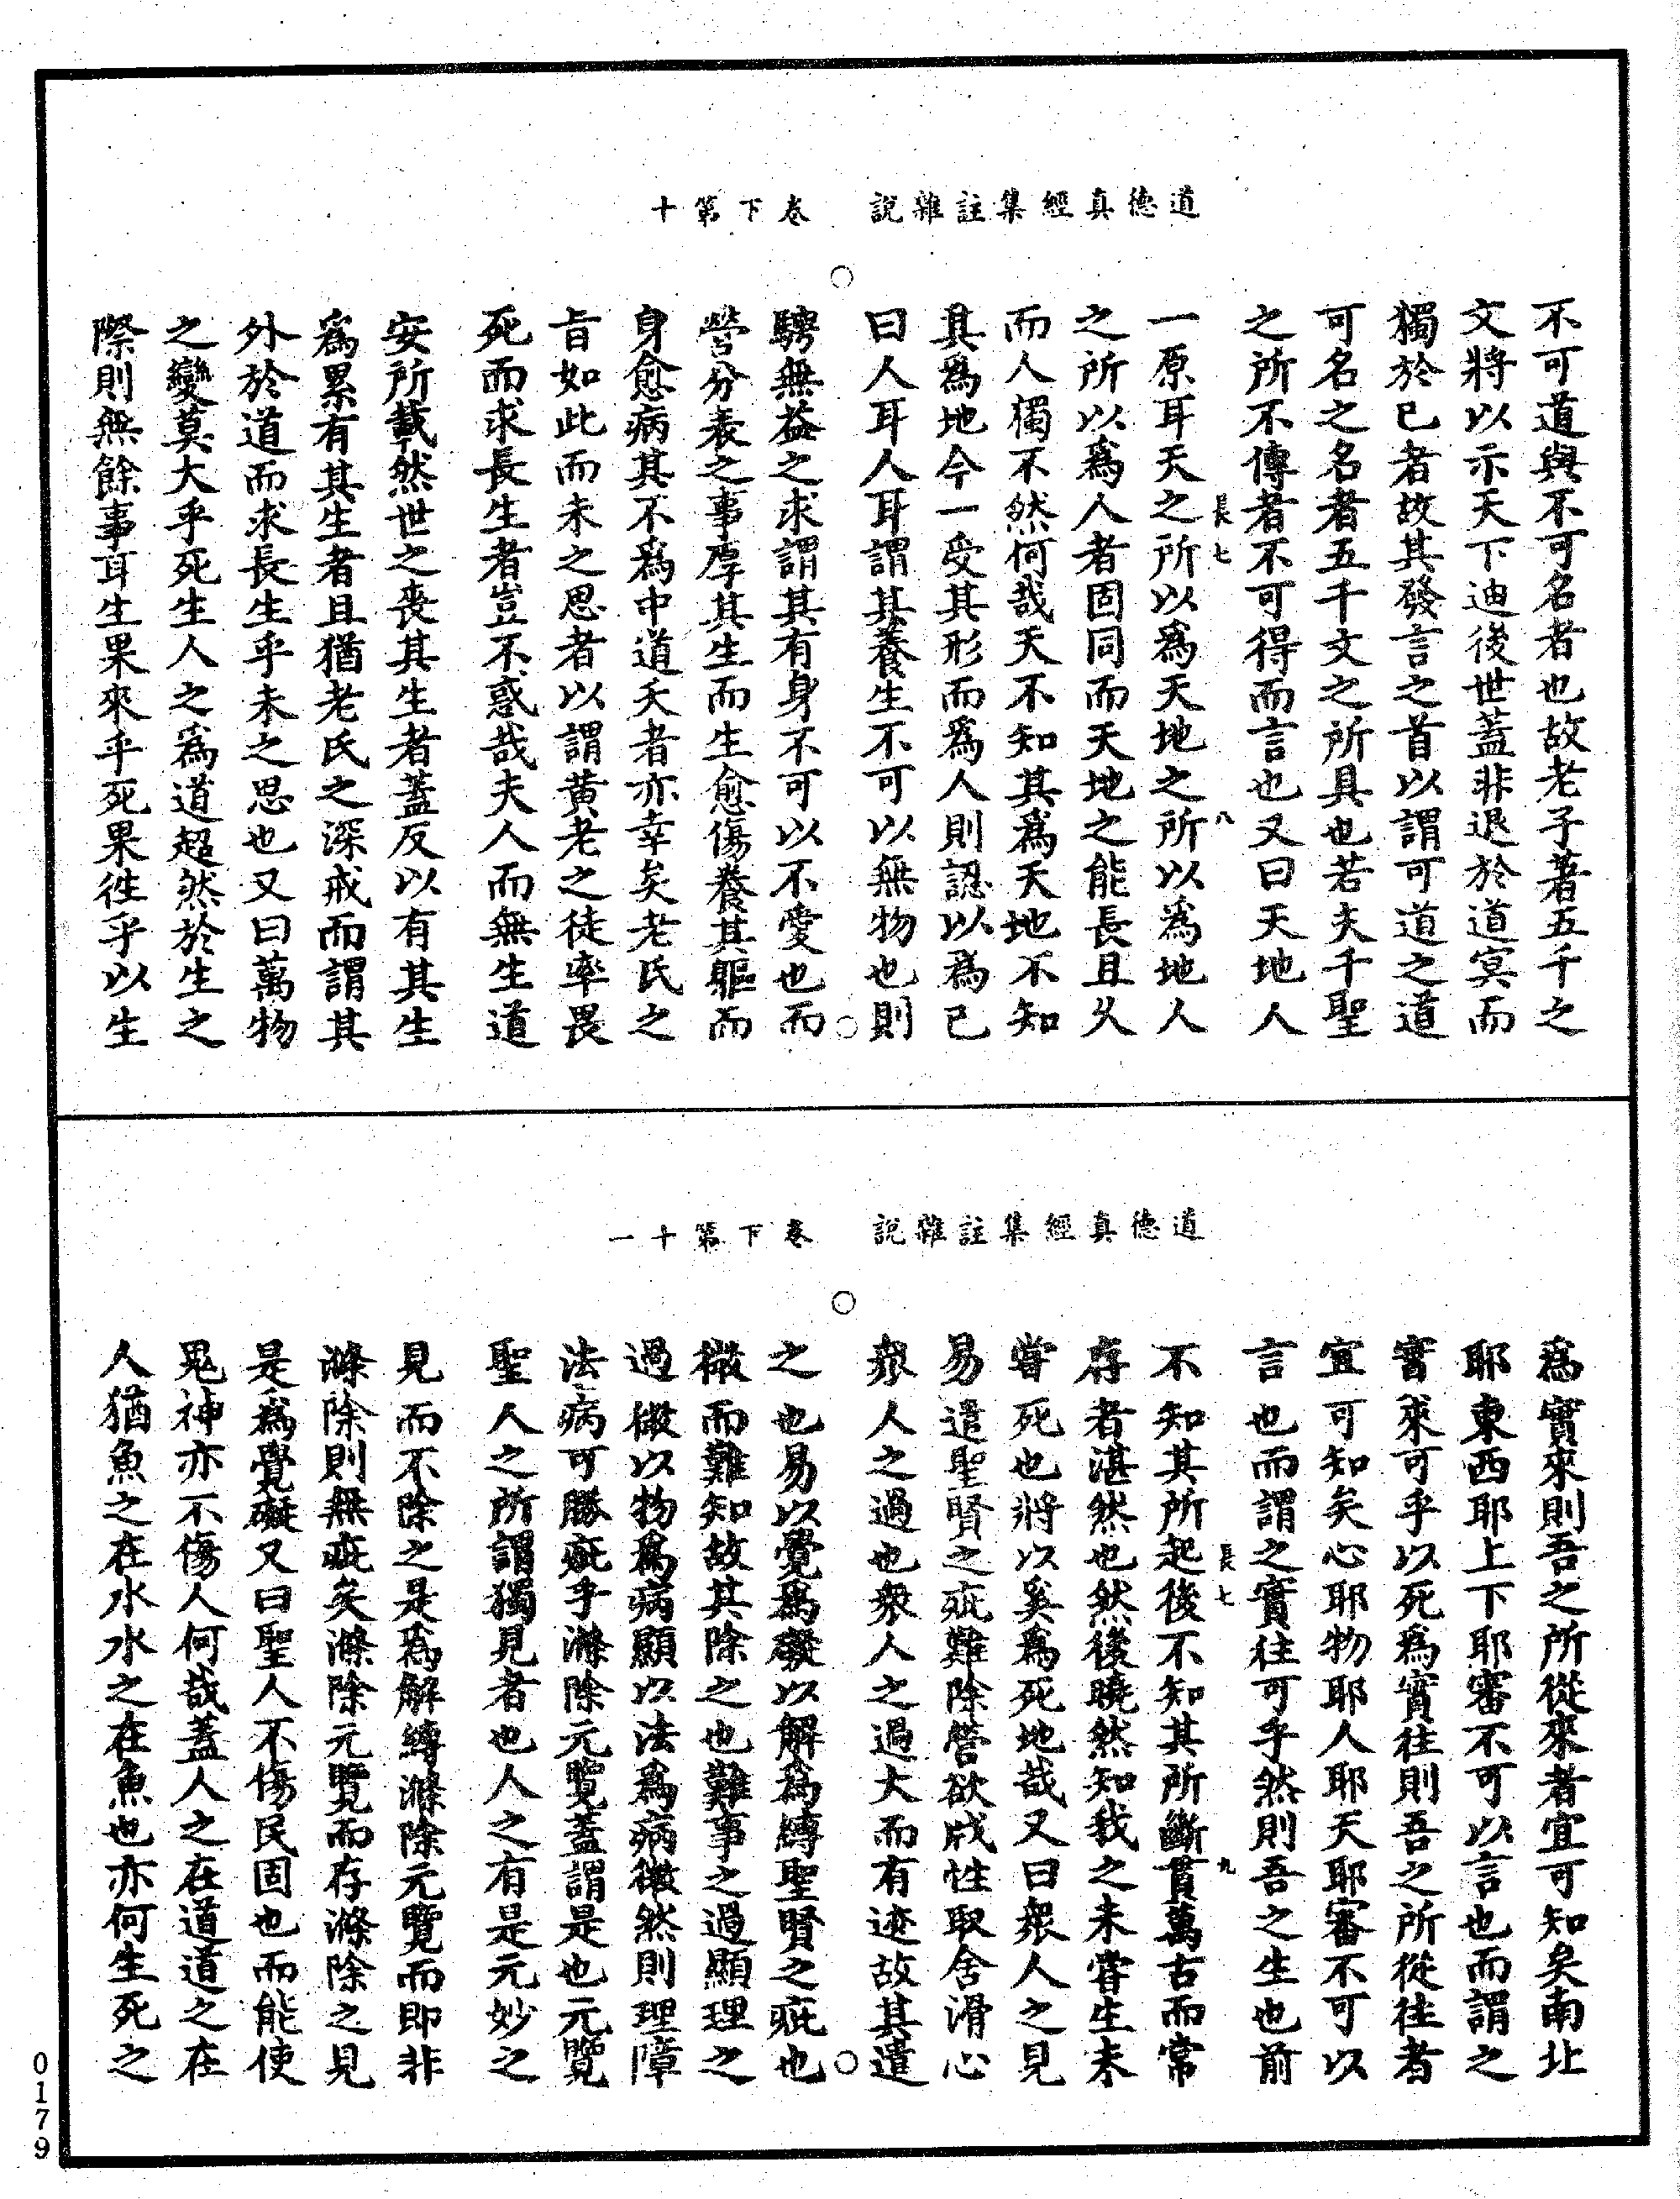 道德真經集註雜說　卷下第十
不可道與不可名者也故老子著五千之
文將以示天下迪後世蓋非退於道冥而
獨於已者故其發言之首以謂可道之道
可名之名者五千文之所具也若夫千聖
之所不傳者不可得而言也又曰天地人
長七　八
一原耳天之所以爲天地之所以爲地人
之所以爲人者固同而天地之能長且久
而人獨不然何哉天不知其爲天地不知
其爲地今一受其形而爲人則認以爲已
曰人耳人耳謂其養生不可以無物也則
騁無益之求謂其有身不可以不愛也而
營分表之事厚其生而生愈傷養其軀而
身愈病其不爲中道夭者亦幸矣老氏之
旨如此而未之思者以謂黄老之徒率畏
死而求長生者豈不惑哉夫人而無生道
安所載然世之喪其生者蓋反以有其生
爲累有其生者且猶老氏之深戒而謂其
外於道而求長生乎未之思也又曰萬物
之變莫大乎死生人之爲道超然於生之
際則無餘事耳生果來乎死果徃乎以生
道德真經集註雜說　卷下第十一
爲實來則吾之所從來者宜可知矣南北
耶東西耶上下耶審不可以言也而謂之
實來可乎以死爲實往則吾之所從往者
宜可知矣心耶物耶人耶天耶審不可以
言也而謂之實往可乎然則吾之生也前
長七　九
不知其所起後不知其所斷貫萬古而常
存者湛然也然後曉然知我之未嘗生未
嘗死也將以奚爲死地哉又曰衆人之見
易遣聖賢之疵難除營欲戕性取舍滑心
衆人之過也衆人之過大而有迹故其遣
之也易以覺爲礙以解爲縛聖賢之疵也
微而難知故其除之也難事之過顯理之
過微以物爲病顯以法爲病微然則理障
法病可勝疵乎滌除元覽蓋謂是也元覽
聖人之所謂獨見者也人之有是元妙之
見而不除之是爲解縛滌除元覽而即非
滌除則無疵矣滌除元覽而存滌除之見
是爲覺礙又曰聖人不傷民固也而能使
鬼神亦不傷人何哉蓋人之在道道之在
人猶魚之在水水之在魚也亦何生死之
0179